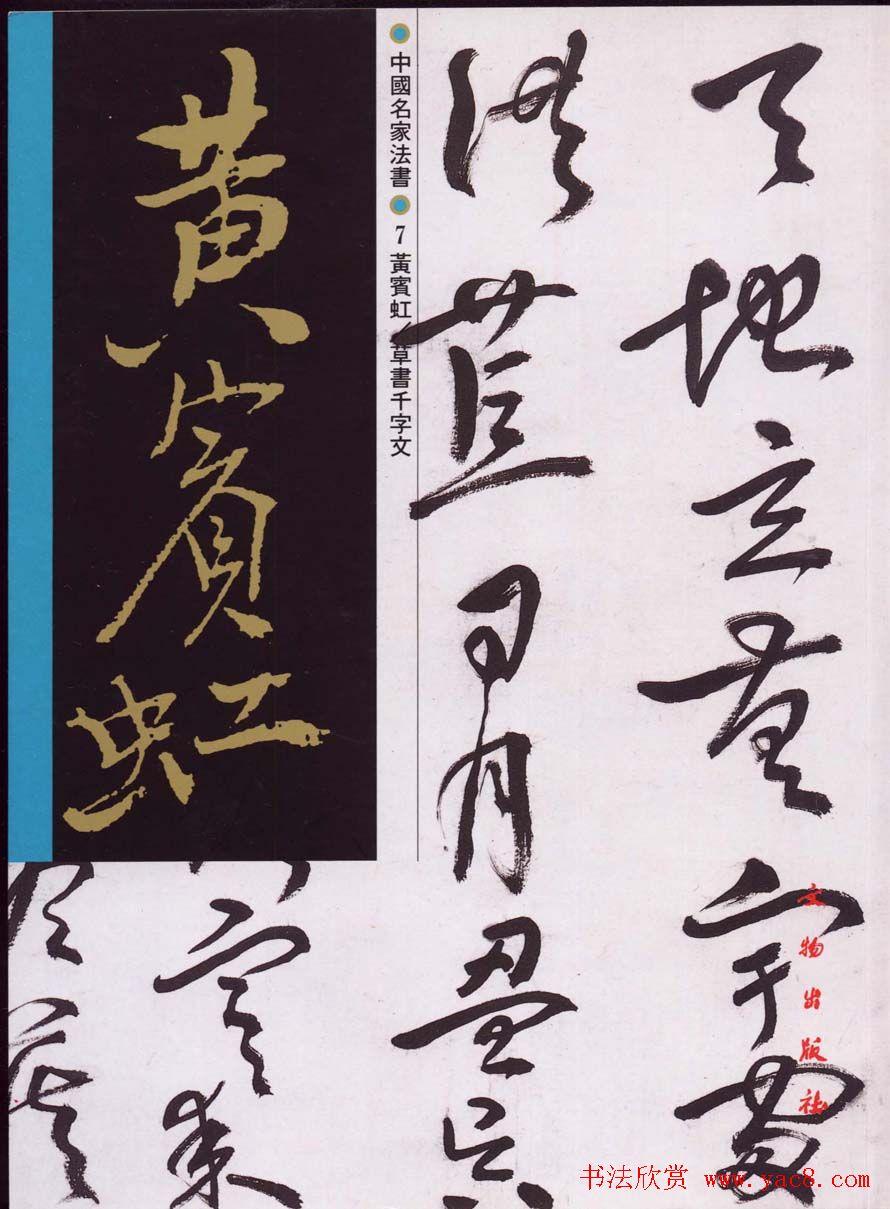 天地玄黄宇宙
洪荒日月盈昃
寒來
中國名家法書
7 黃賓虹/草書千字文
黄賓虹
文物出版社
书法欣赏 www.yac8.com